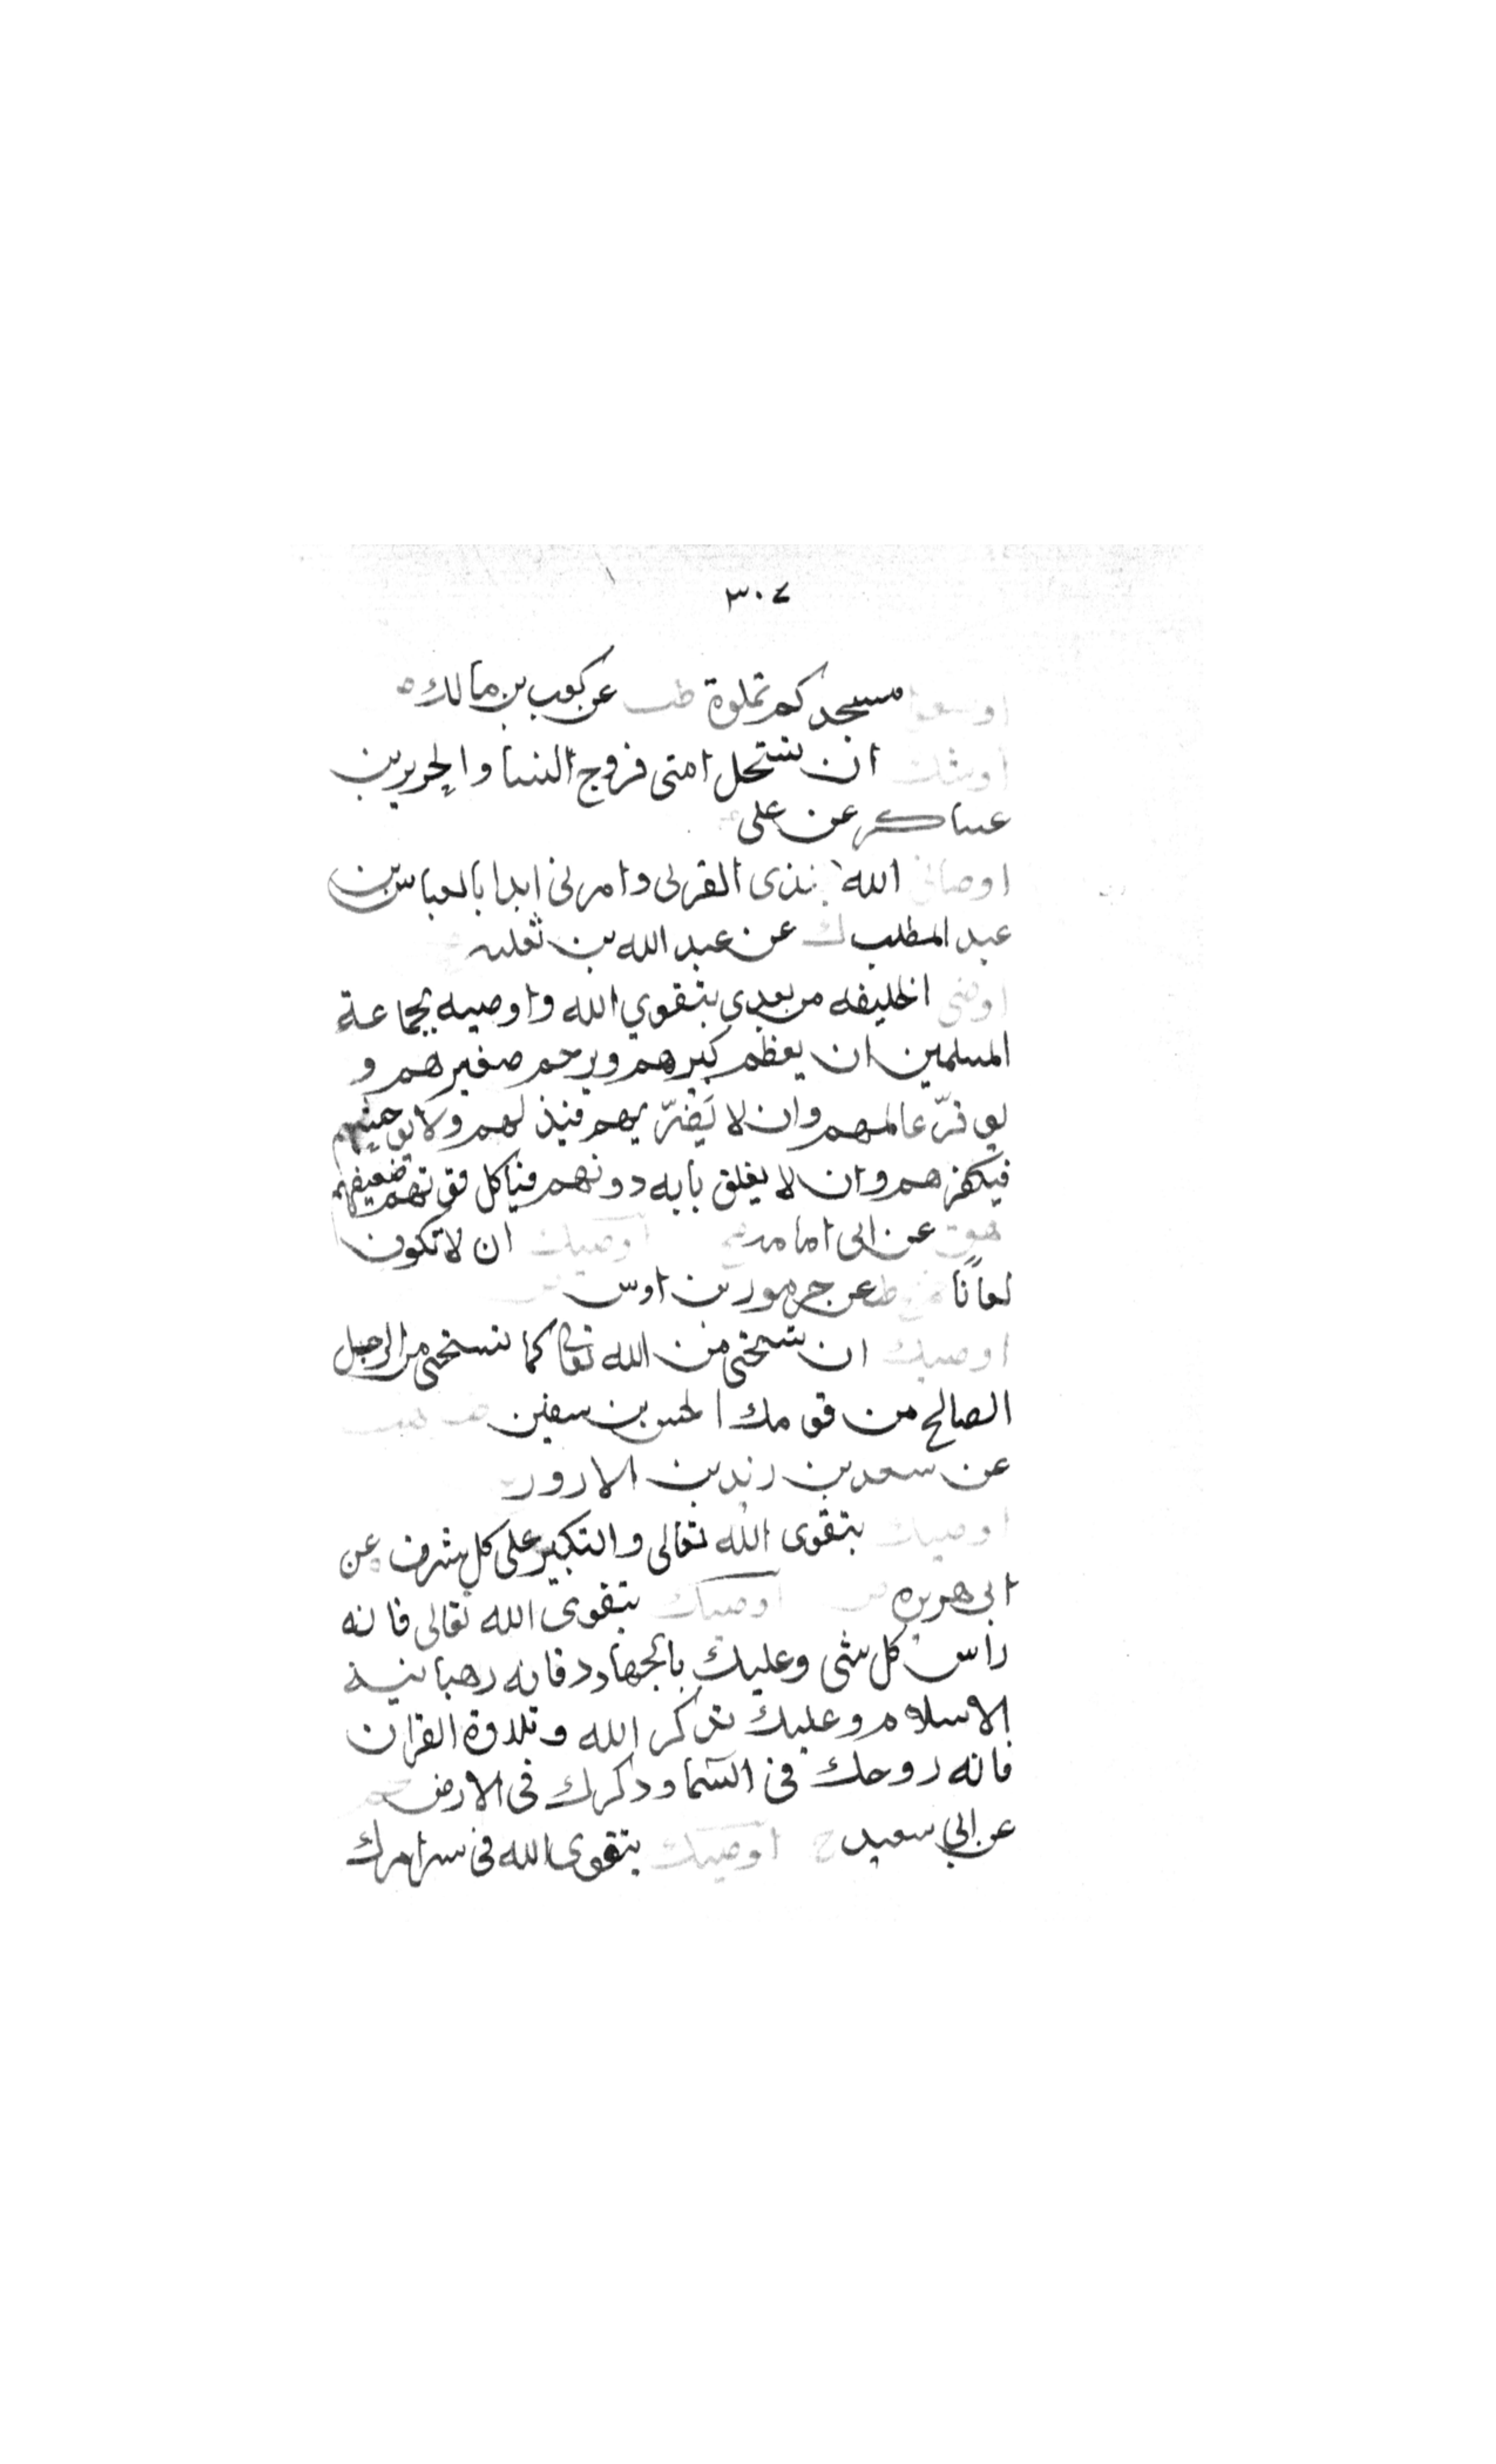 ٣٠٤
اوسعوا مسجدكم تملوة طب عن كعب بن مالك ه
اوشك ان تستحل امتى فروج النسا والحرير بن
عساكر عن على
اوصانى الله بذى القربى وامرنى ابدا بالعباس بن
عبد المطلب ك عن عبد الله بن ثعلبه
اوصى الخليفه من بعدى بتقوي الله واوصيه بجماعة
المسلمين ان يعظم كبيرهم ويرحم صغيرهم و
يوقرّ عالمهم وان لا يَضرّ بهم فيذلهم ولا يوحشهم
فيكفرهم وان لا يغلق بابه دونهم فياكل قويهم ضعيفهم
هق عن ابى امامه اوصيك ان لا تكون
لعانًا طب عن جرموز بن اوس
اوصيك ان تستحى من الله تعالى كما تستحى من الرجل
الصالح من قومك الحسن بن سفين طب هب
عن سعد بن زيد بن الازور
اوصيك بتقوى الله تعالى والتكبير على كل شرف عن
ابى هريره اوصيك بتقوى الله تعالى فانه
راس كل شى وعليك بالجهاد فانه رهبانية
الاسلام وعليك بذكر الله وتلاوة القران
فانه روحك فى السما وذكرك فى الارض حم
عن ابي سعيد ح اوصيك بتقوى الله فى سر امرك